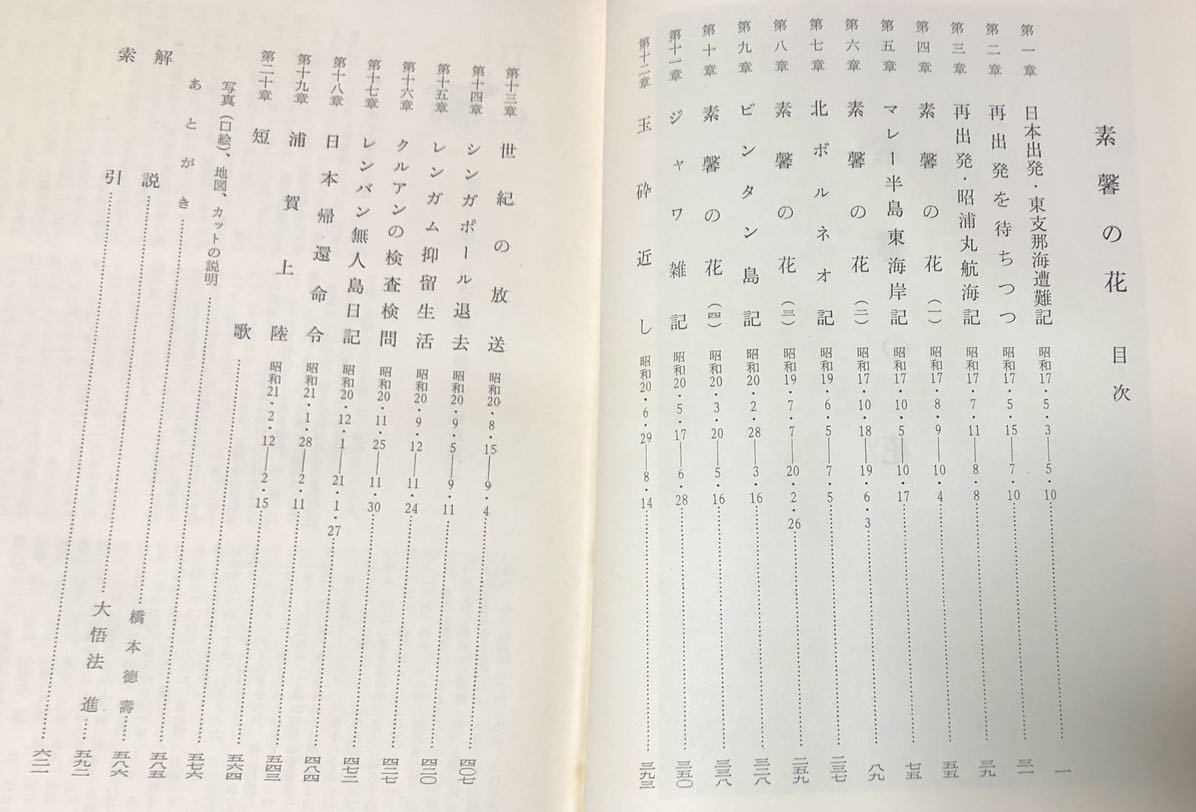 素馨の花 目次
第一章 日本出発・東支那海遭難記 昭和17・5・3——5・10……一
第二章 再出発を待ちつつ 昭和17・5・15——7・10……三一
第三章 再出発・昭浦丸航海記 昭和17・7・11——8・8……三九
第四章 素馨の花(一) 昭和17・8・9——10・4……五五
第五章 マレー半島東海岸記 昭和17・10・5——10・17……七五
第六章 素馨の花(二) 昭和17・10・18——19・6・3……八九
第七章 北ボルネオ記 昭和19・6・5——7・5……二三七
第八章 素馨の花(三) 昭和19・7・7——20・2・26……二五九
第九章 ビンタン島記 昭和20・2・28——3・16……三二八
第十章 素馨の花(四) 昭和20・3・20——5・16……三三八
第十一章 ジャワ雑記 昭和20・5・17——6・28……三五〇
第十二章 玉砕近し 昭和20・6・29——8・14……三九三
第十三章 世紀の放送 昭和20・8・15——9・4……四〇七
第十四章 シンガポール退去 昭和20・9・5——9・11……四二〇
第十五章 レンガム抑留生活 昭和20・9・12——11・24……四二七
第十六章 クルアンの検査検問 昭和20・11・25——11・30……四七二
第十七章 レンバン無人島日記 昭和20・12・1——21・1・27……四八四
第十八章 日本帰還命令 昭和21・1・28——2・11……五四三
第十九章 浦賀上陸 昭和21・2・12——2・15……五六四
第二十章 短歌……五七六
写真(口絵)、地図、カットの説明……五八五
あとがき……橋本徳壽……五八六
解説……大悟法進……五九二
索引……六二一